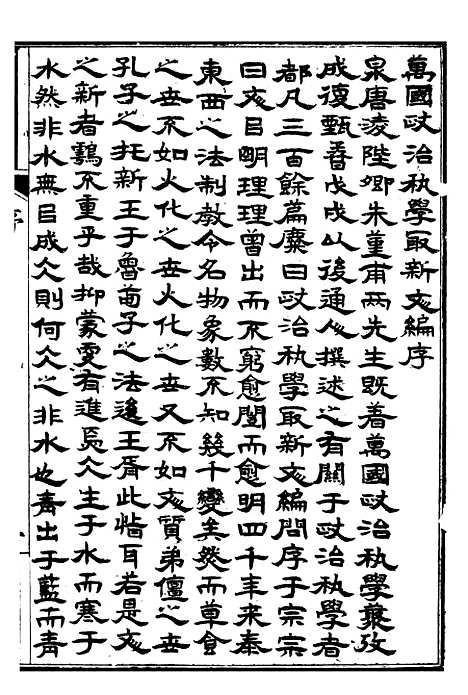 萬國政治秇學最新文編序
泉唐淩陛卿朱菫甫兩先生既著萬國政治秇學叢攷
成復甄蒥戊戌以後通人撰述之有關于政治秇學者
都凡三百餘篇彙曰政治秇學最新文編問序于宗宗
曰文㠯明理理曾出而不窮愈閏而愈明四千年來泰
東西之法制教令名物象數不知幾千變矣然而草食
之世不如火化之世火化之世又不如文質弟儃之世
孔子之托新王于魯荀子之法後王胥此恉耳若是文
之新者䳽不重乎哉抑蒙更有進焉仌生于水而寒于
水然非水無㠯成仌則何仌之非水也青出于藍而青
序
一